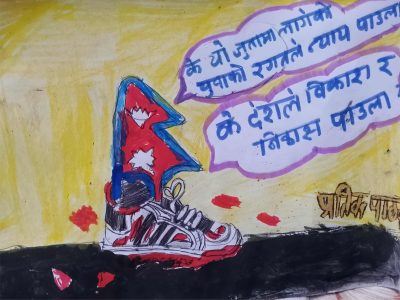 के यो जुत्तामा लागेको
युवाको रगतले न्याय पाउला
के देशले विकास र
निकास पाउला
प्रतिक